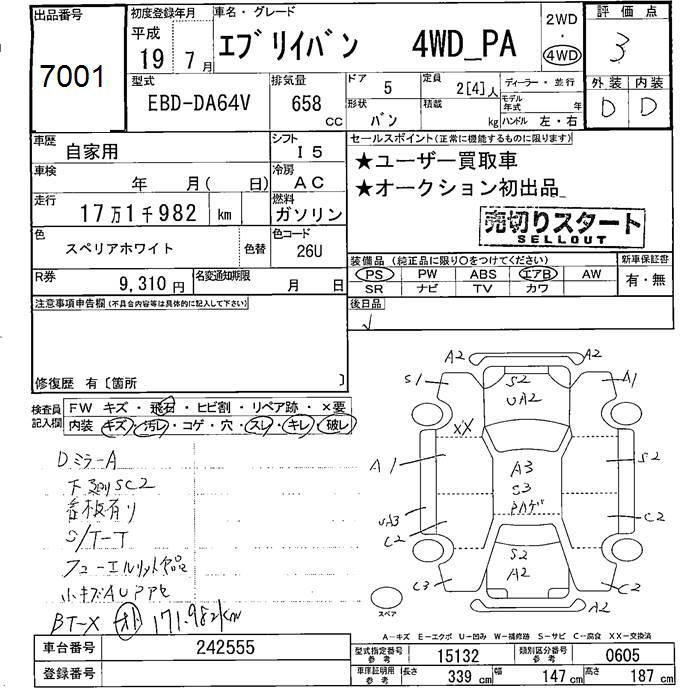 出品番号
7001
初度登録年月
平成
19年7月
車名・グレード
エブリイバン 4WD_PA
2WD
・
4WD
評価点
3
型式
EBD-DA64V
排気量
658
CC
ドア
5
定員
2[4]人
ディーラー・並行
形状
バン
積載
kg
モデル年式
年
ハンドル 左・右
外装 内装
D D
車歴
自家用
シフト
I5
セールスポイント(正常に機能するものに限ります)
★ユーザー買取車
★オークション初出品
売切りスタート
SELLOUT
車検
年 月( 日)
冷房
AC
走行
17万1千982 km
燃料
ガソリン
色
スペリアホワイト
色替
色コード
26U
R券
9,310円
名変通知期限
月 日
装備品(純正品に限り○をつけてください)
新車保証書
PS PW ABS エアB AW
SR ナビ TV カワ
有・無
注意事項申告欄(不具合内容等は具体的に記入して下さい)
後日品
修復歴 有〔箇所 〕
検査員記入欄
FW キズ・飛石・ヒビ割・リペア跡・×要
内装 キズ・汚レ・コゲ・穴・スレ・キレ・破レ
DミラーA
下廻りSC2
看板有り
S/T-T
フューエルリット欠品
小キズAUアアセ
BT-X オト 171.982km
A2 A2
S1 S2 A1
UA2
XX
A1 A3 S2
S3
PAゲ
UA3
C2 C2
S2
C3 A2 C2
A2
スペア
A-キズ E-エクボ U-凹み W-補修跡 S-サビ C-腐食 XX-交換済
車台番号
242555
型式指定番号
参考
15132
類別区分番号
参考
0605
登録番号
車庫証明用
参考
長さ
339 cm
幅
147 cm
高さ
187 cm